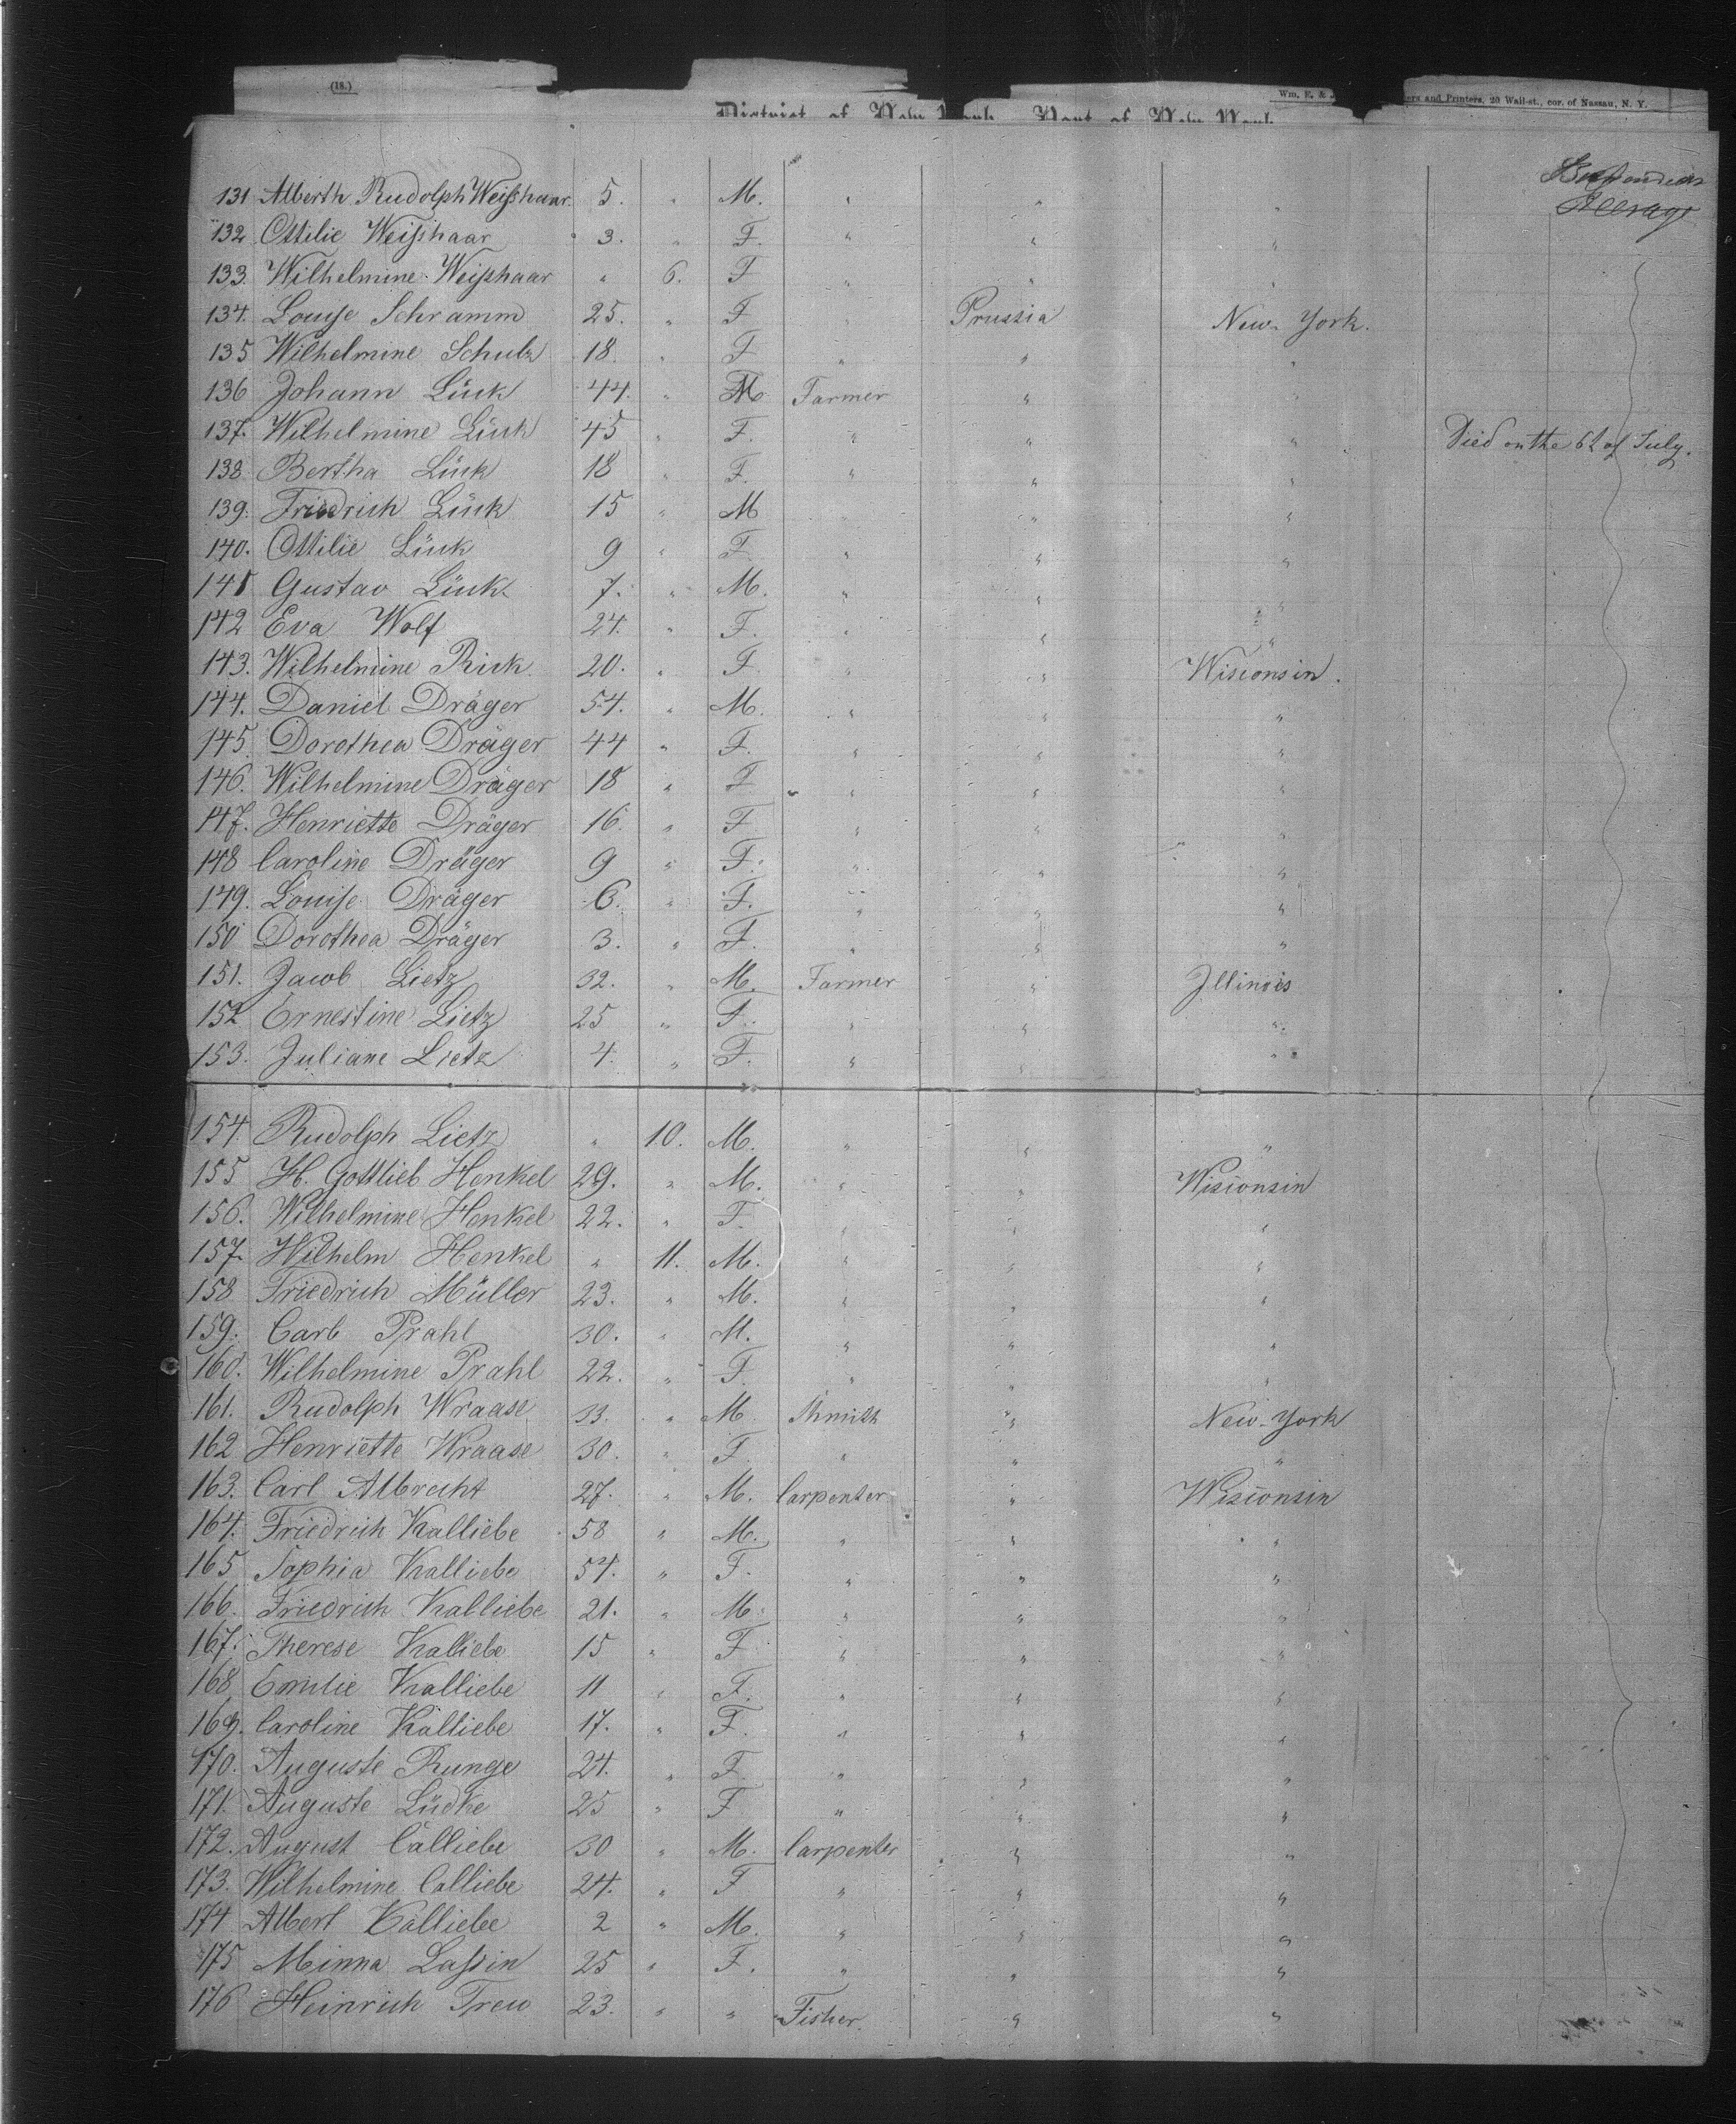 (18.)
Wm. E. & J. ers and Printers, 20 Wall-st., cor. of Nassau, N. Y.
District of New York Port of New York
131 Alberth Rudolph Weißhaar. 5. " M. " " "
132 Ottilie Weißhaar 3. " F. " " "
133. Wilhelmine Weißhaar " 6. F " " "
134. Louise Schramm 25. " F " Prussia New-York.
135 Wilhelmine Schulz 18. " F " " "
136 Johann Lück 44. " M Farmer " "
137. Wilhelmine Lück 45 " F. " " " Died on the 6t of July.
138 Bertha Lück 18 " F. " " "
139. Friedrich Lück 15 " M " " "
140. Ottilie Lück 9 " F. " " "
141 Gustav Lück 7. " M. " " "
142 Eva Wolf 24. " F. " " "
143. Wilhelmine Rick 20. " F " " Wisconsin.
144. Daniel Dräger 54. " M. " " "
145. Dorothea Dräger 44 " F. " " "
146. Wilhelmine Dräger 18 " F " " "
147. Henriette Dräger 16. " F " " "
148 Caroline Dräger 9 " F. " " "
149. Louise Dräger 6. " F. " " "
150 Dorothea Dräger 3. " F. " " "
151. Jacob Lietz 32. " M. Farmer " Illinois
152 Ernestine Lietz 25 " F. " " "
153. Juliane Lietz 4. " F. " " "
154. Rudolph Lietz " 10. M. " " "
155 H. Gottlieb Henkel 29. " M. " " Wisconsin
156. Wilhelmine Henkel 22. " F. " " "
157. Wilhelm Henkel " 11. M. " " "
158 Friedrich Müller 23. " M. " " "
159. Carl Prahl 30. " M. " " "
160. Wilhelmine Prahl 22. " F. " " "
161. Rudolph Wraase 33. " M. Shmith " New-York
162 Henriette Wraase 30. " F. " " "
163. Carl Albrecht 27. " M. Carpenter " Wisconsin
164. Friedrich Kalliebe 58 " M. " " "
165 Sophia Kalliebe 54. " F. " " "
166. Friedrich Kalliebe 21. " M. " " "
167. Therese Kalliebe 15 " F " " "
168 Emilie Kalliebe 11 " F. " " "
169. Caroline Kalliebe 17. " F. " " "
170. Auguste Runge 24. " F. " " "
171. Auguste Lüdke 25 " F " " "
172. August Calliebe 30 " M. Carpenter " "
173. Wilhelmine Calliebe 24. " F " " "
174 Albert Kalliebe 2 " M. " " "
175 Minna Laßin 25 " F. " " "
176 Heinrich Treu 23. " " Fisher. " "